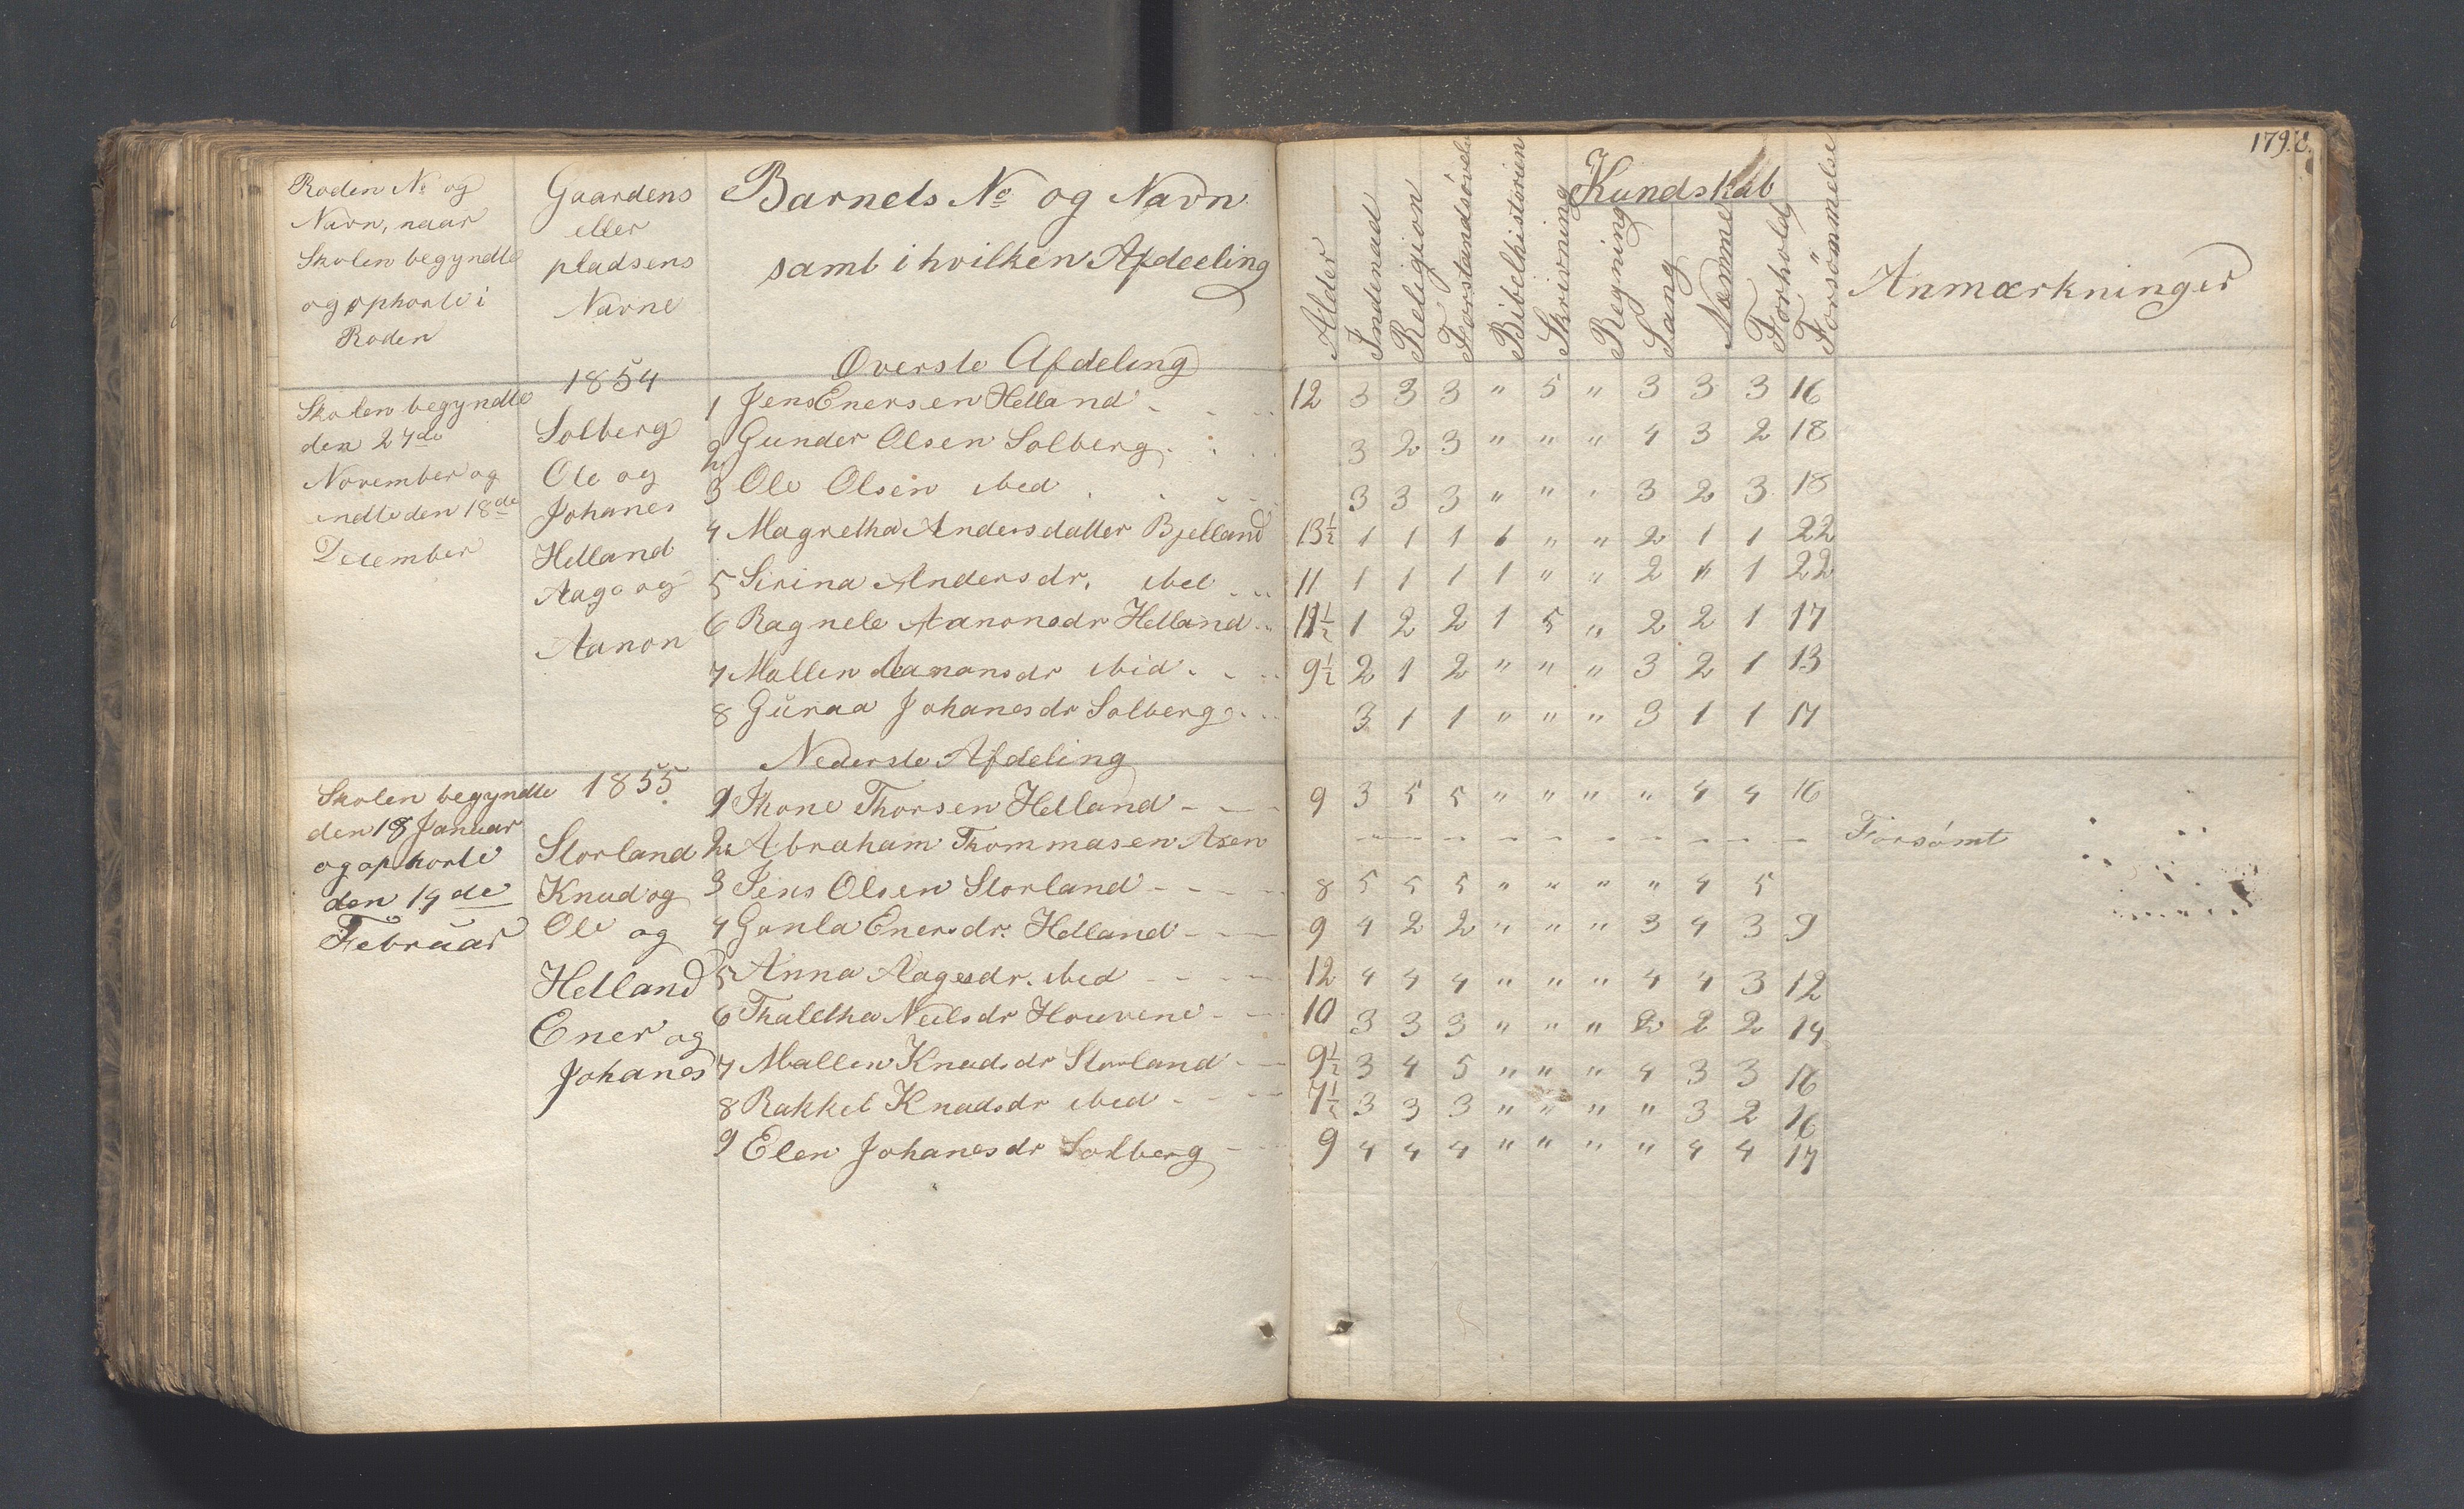 179.
Roden No og
Navn, naar
Skolen begyndte
og ophørte i
Roden
Gaardens
eller
pladsens
Navne
Barnets No og Navn
samt i hvilken Afdeeling
Alder
Indenad
Religion
Forstandsövelse
Bibelhistorien
Skrivning
Regning
Sang
Nemme
Forhold
Forsömmelse
Kundskab
Anmærkninger
Øverste Afdeling
1854
Skolen begyndte
den 27de
November og
endte den 18de
December
Solberg
Ole og
Johanes
Helland
Aage og
Aanon
1 Jens Enersen Helland 12 3 3 3 " 5 " 3 3 3 16
2 Gunder Olsen Solberg 3 2 3 " " " 4 3 2 18
3 Ole Olsen ibed 3 3 3 " " " 3 2 3 18
4 Magretha Andersdatter Bjelland 13½ 1 1 1 1 " " 2 1 1 22
5 Sirina Andersdr. ibed 11 1 1 1 1 " " 2 1 1 22
6 Ragnele Aanonsdr Helland 11½ 1 2 2 1 5 " 2 2 1 17
7 Mallen Aanonsdr ibid 9½ 2 1 2 " " " 3 2 1 13
8 Guraa Johanesdr Solberg 3 1 1 " " " 3 1 1 17
Nederste Afdeling
1855
Skolen begyndte
den 18 Januar
og ophorte
den 14de
Februar
Storland
Knud og
Ole og
Helland
Ener og
Johanes
1 Thone Thorsen Helland 9 3 5 5 " " " " 4 4 16
2 Abraham Thommasen Asen - - - - - - - - - - Forsömt
3 Jens Olsen Storland 8 5 5 5 " " " " 4 5
4 Gunla Enersdr. Helland 9 4 2 2 " " " 3 4 3 9
5 Anna Aagesdr. ibed 12 4 4 4 " " " 4 4 3 12
6 Thaletha Neilsdr Houvene 10 3 3 3 " " " 2 2 2 14
7 Mallen Knudsdr Storland 9½ 3 4 5 " " " 4 3 3 16
8 Rakkel Knudsdr ibed 7½ 3 3 3 " " " " 3 2 16
9 Elen Johanesdr Solberg 9 4 4 4 " " " " 4 4 17